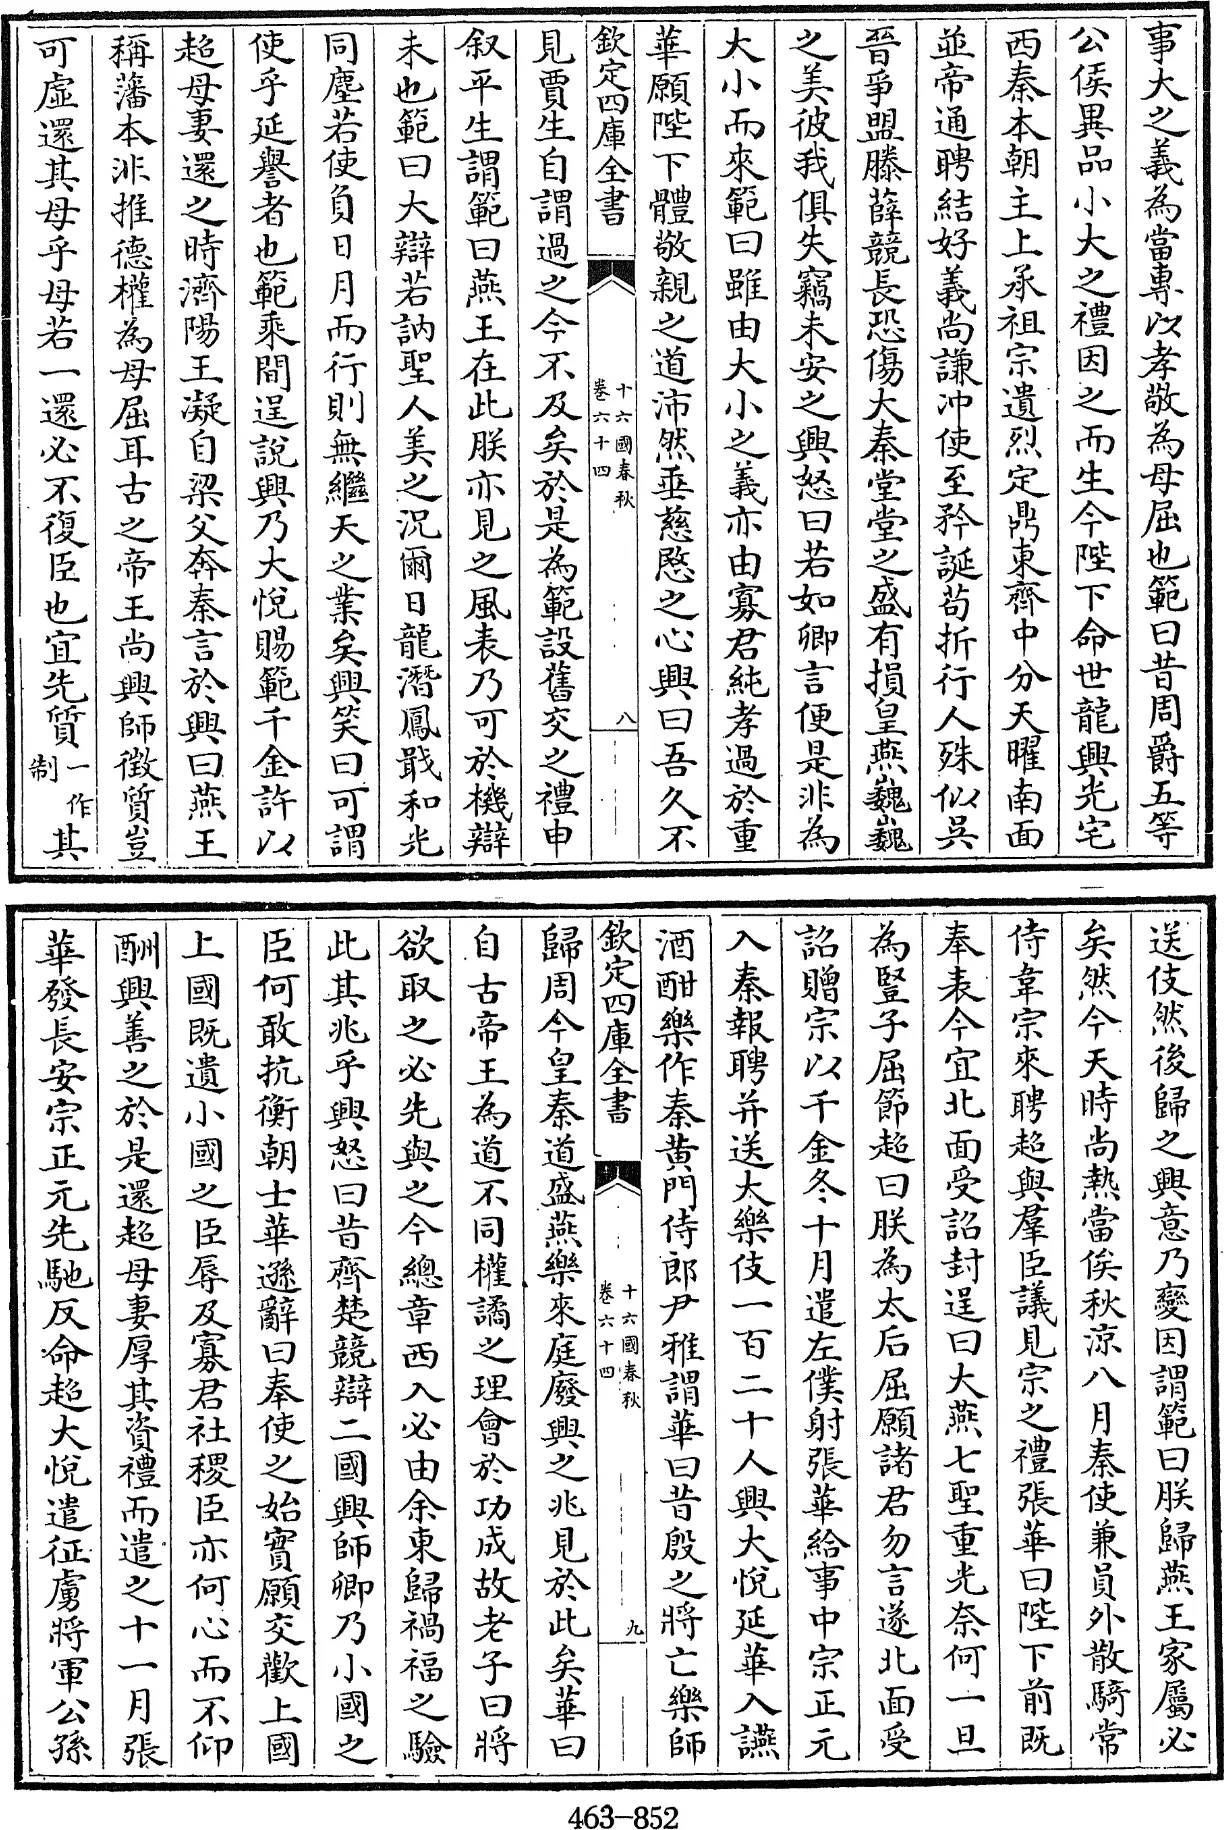 事大之義為當專以孝敬為母屈也範曰昔周爵五等
公侯異品小大之禮因之而生今陛下命世龍興光宅
西秦本朝主上承祖宗遺烈定鼎東齊中分天曜南面
並帝通聘結好義尚謙冲使至矜誕苟折行人殊似吳
晉爭盟滕薛競長恐傷大秦堂堂之盛有損皇燕巍巍
之美彼我俱失竊未安之興怒曰若如卿言便是非為
大小而來範曰雖由大小之義亦由寡君純孝過於重
華願陛下體敬親之道沛然垂慈愍之心興曰吾久不
欽定四庫全書
十六國春秋
卷六十四
八
見賈生自謂過之今不及矣於是為範設舊交之禮申
叙平生謂範曰燕王在此朕亦見之風表乃可於機辯
未也範曰大辯若訥聖人美之況爾日龍潛鳳戢和光
同塵若使負日月而行則無繼天之業矣興笑曰可謂
使乎延譽者也範乘間逞說興乃大悅賜範千金許以
超母妻還之時濟陽王凝自梁父奔秦言於興曰燕王
稱藩本非推德權為母屈耳古之帝王尚興師徵質豈
可虛還其母乎母若一還必不復臣也宜先質一作制其
送伎然後歸之興意乃變因謂範曰朕歸燕王家屬必
矣然今天時尚熱當俟秋涼八月秦使兼員外散騎常
侍韋宗來聘超與羣臣議見宗之禮張華曰陛下前既
奉表今宜北面受詔封逞曰大燕七聖重光奈何一旦
為豎子屈節超曰朕為太后屈願諸君勿言遂北面受
詔贈宗以千金冬十月遣左僕射張華給事中宗正元
入秦報聘并送大樂伎一百二十人興大悅延華入讌
酒酣樂作秦黄門侍郎尹雅謂華曰昔殷之將亡樂師
欽定四庫全書
十六國春秋
卷六十四
九
歸周今皇秦道盛燕樂來庭廢興之兆見於此矣華曰
自古帝王為道不同權譎之理會於功成故老子曰將
欲取之必先與之今總章西入必由余東歸禍福之驗
此其兆乎興怒曰昔齊楚競辯二國興師卿乃小國之
臣何敢抗衡朝士華遜辭曰奉使之始實願交歡上國
上國既遺小國之臣辱及寡君社稷臣亦何心而不仰
酬興善之於是還超母妻厚其資禮而遣之十一月張
華發長安宗正元先馳反命超大悅遣征虜將軍公孫
463-852